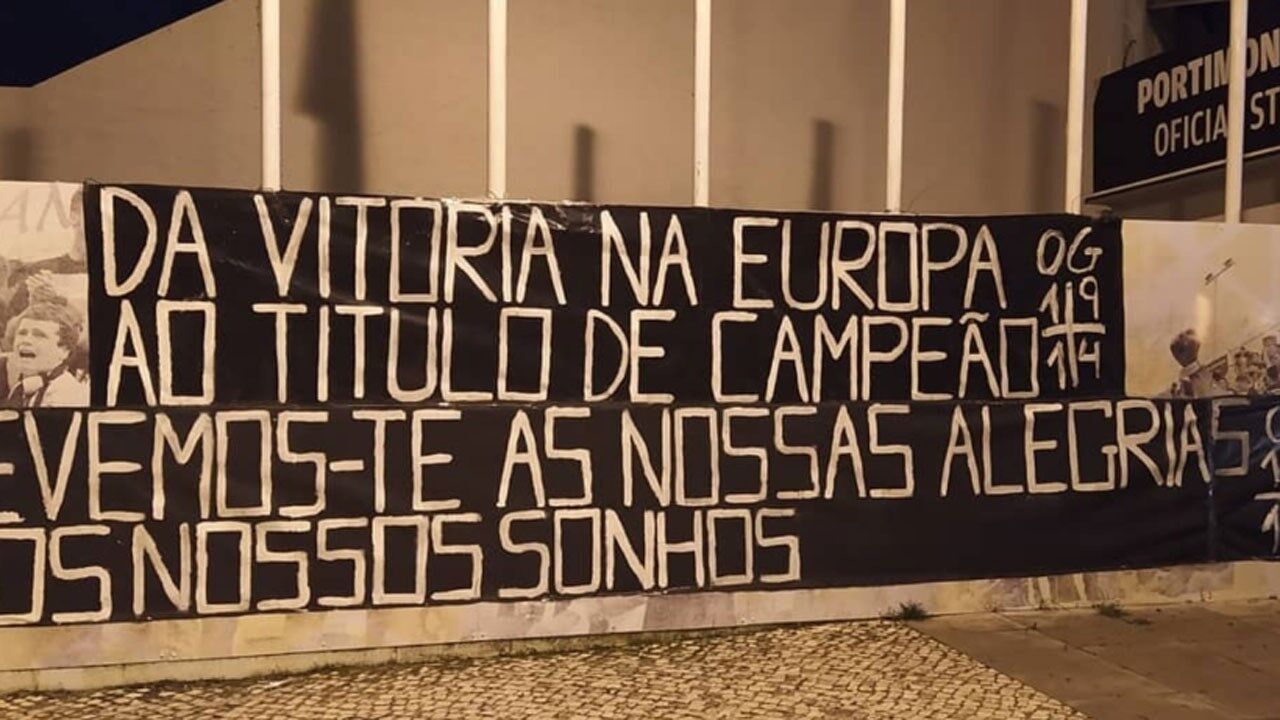 DA VITORIA NA EUROPA
OG
19
14
AO TITULO DE CAMPEÃO
EVEMOS-TE AS NOSSAS ALEGRIAS
OS NOSSOS SONHOS
PORTIMON
OFICIAL ST